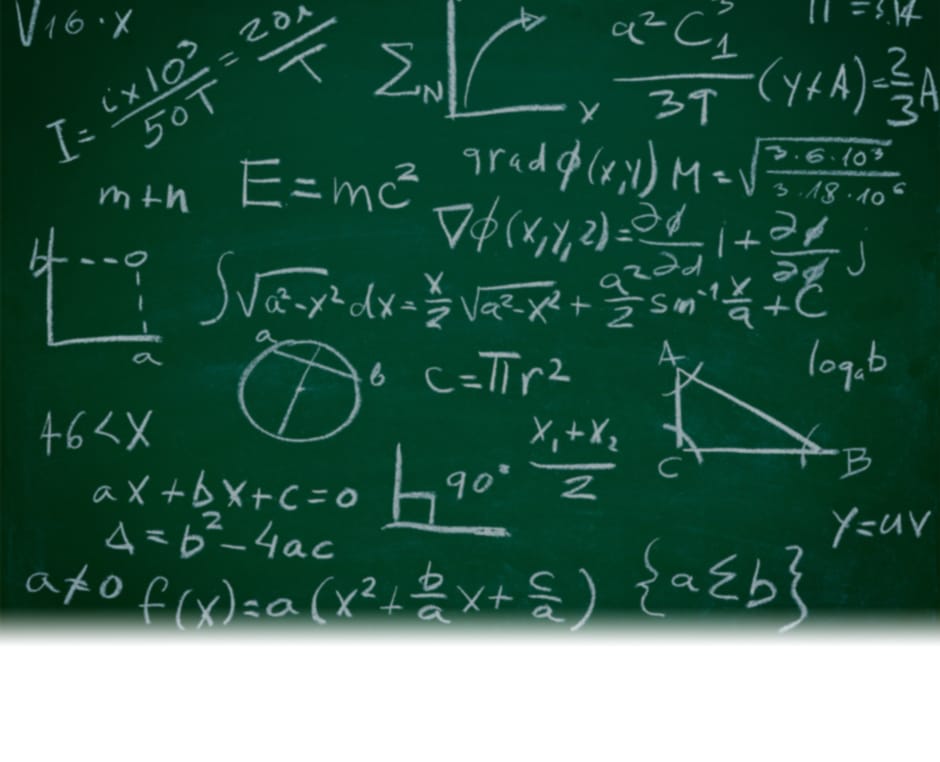 √16·x
I = (i×10³)/(50T) = 20i/T
∑N
x
a²C₁³/3T (y+A) = 2/3 A
π = 3.14
m+n
E=mc²
grad φ(x,y) M = √(3·6·10³/3·18·10⁶)
∇φ(x,y,z) = ∂φ/∂d i + ∂φ/∂φ j
b
a
∫√a²-x² dx = x/2 √a²-x² + a²/2 sin⁻¹ x/a + C
a
b
c=πr²
A
C
B
logₐb
+6<X
x₁+x₂/2
ax+bx+c=0
90°
Δ=b²-4ac
y=uv
a≠0
f(x)=a(x²+b/a x+c/a)
{a∑b}